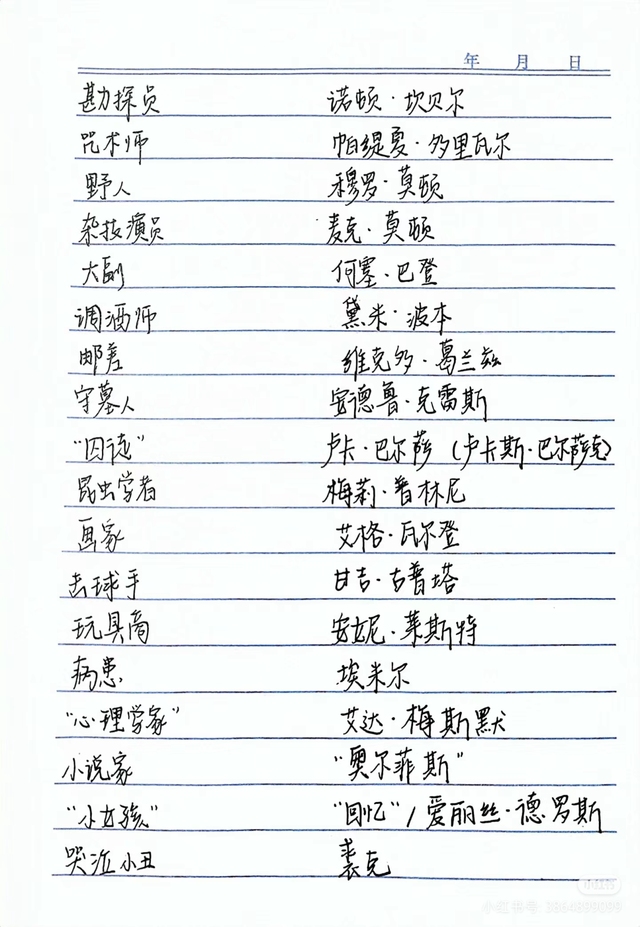 年 月 日
勘探员 诺顿·坎贝尔
咒术师 帕缇夏·多里瓦尔
野人 穆罗·莫顿
杂技演员 麦克·莫顿
大副 何塞·巴登
调酒师 黛米·波本
邮差 维克多·葛兰兹
守墓人 安德鲁·克雷斯
“囚徒” 卢卡·巴尔萨（卢卡斯·巴尔萨克）
昆虫学者 梅莉·普林尼
画家 艾格·瓦尔登
击球手 甘吉·古普塔
玩具商 安妮·莱斯特
病患 埃米尔
“心理学家” 艾达·梅斯默
小说家 “奥尔菲斯”
“小女孩” “回忆”/爱丽丝·德罗斯
哭泣小丑 裘克
小红书
小红书号 3864899099